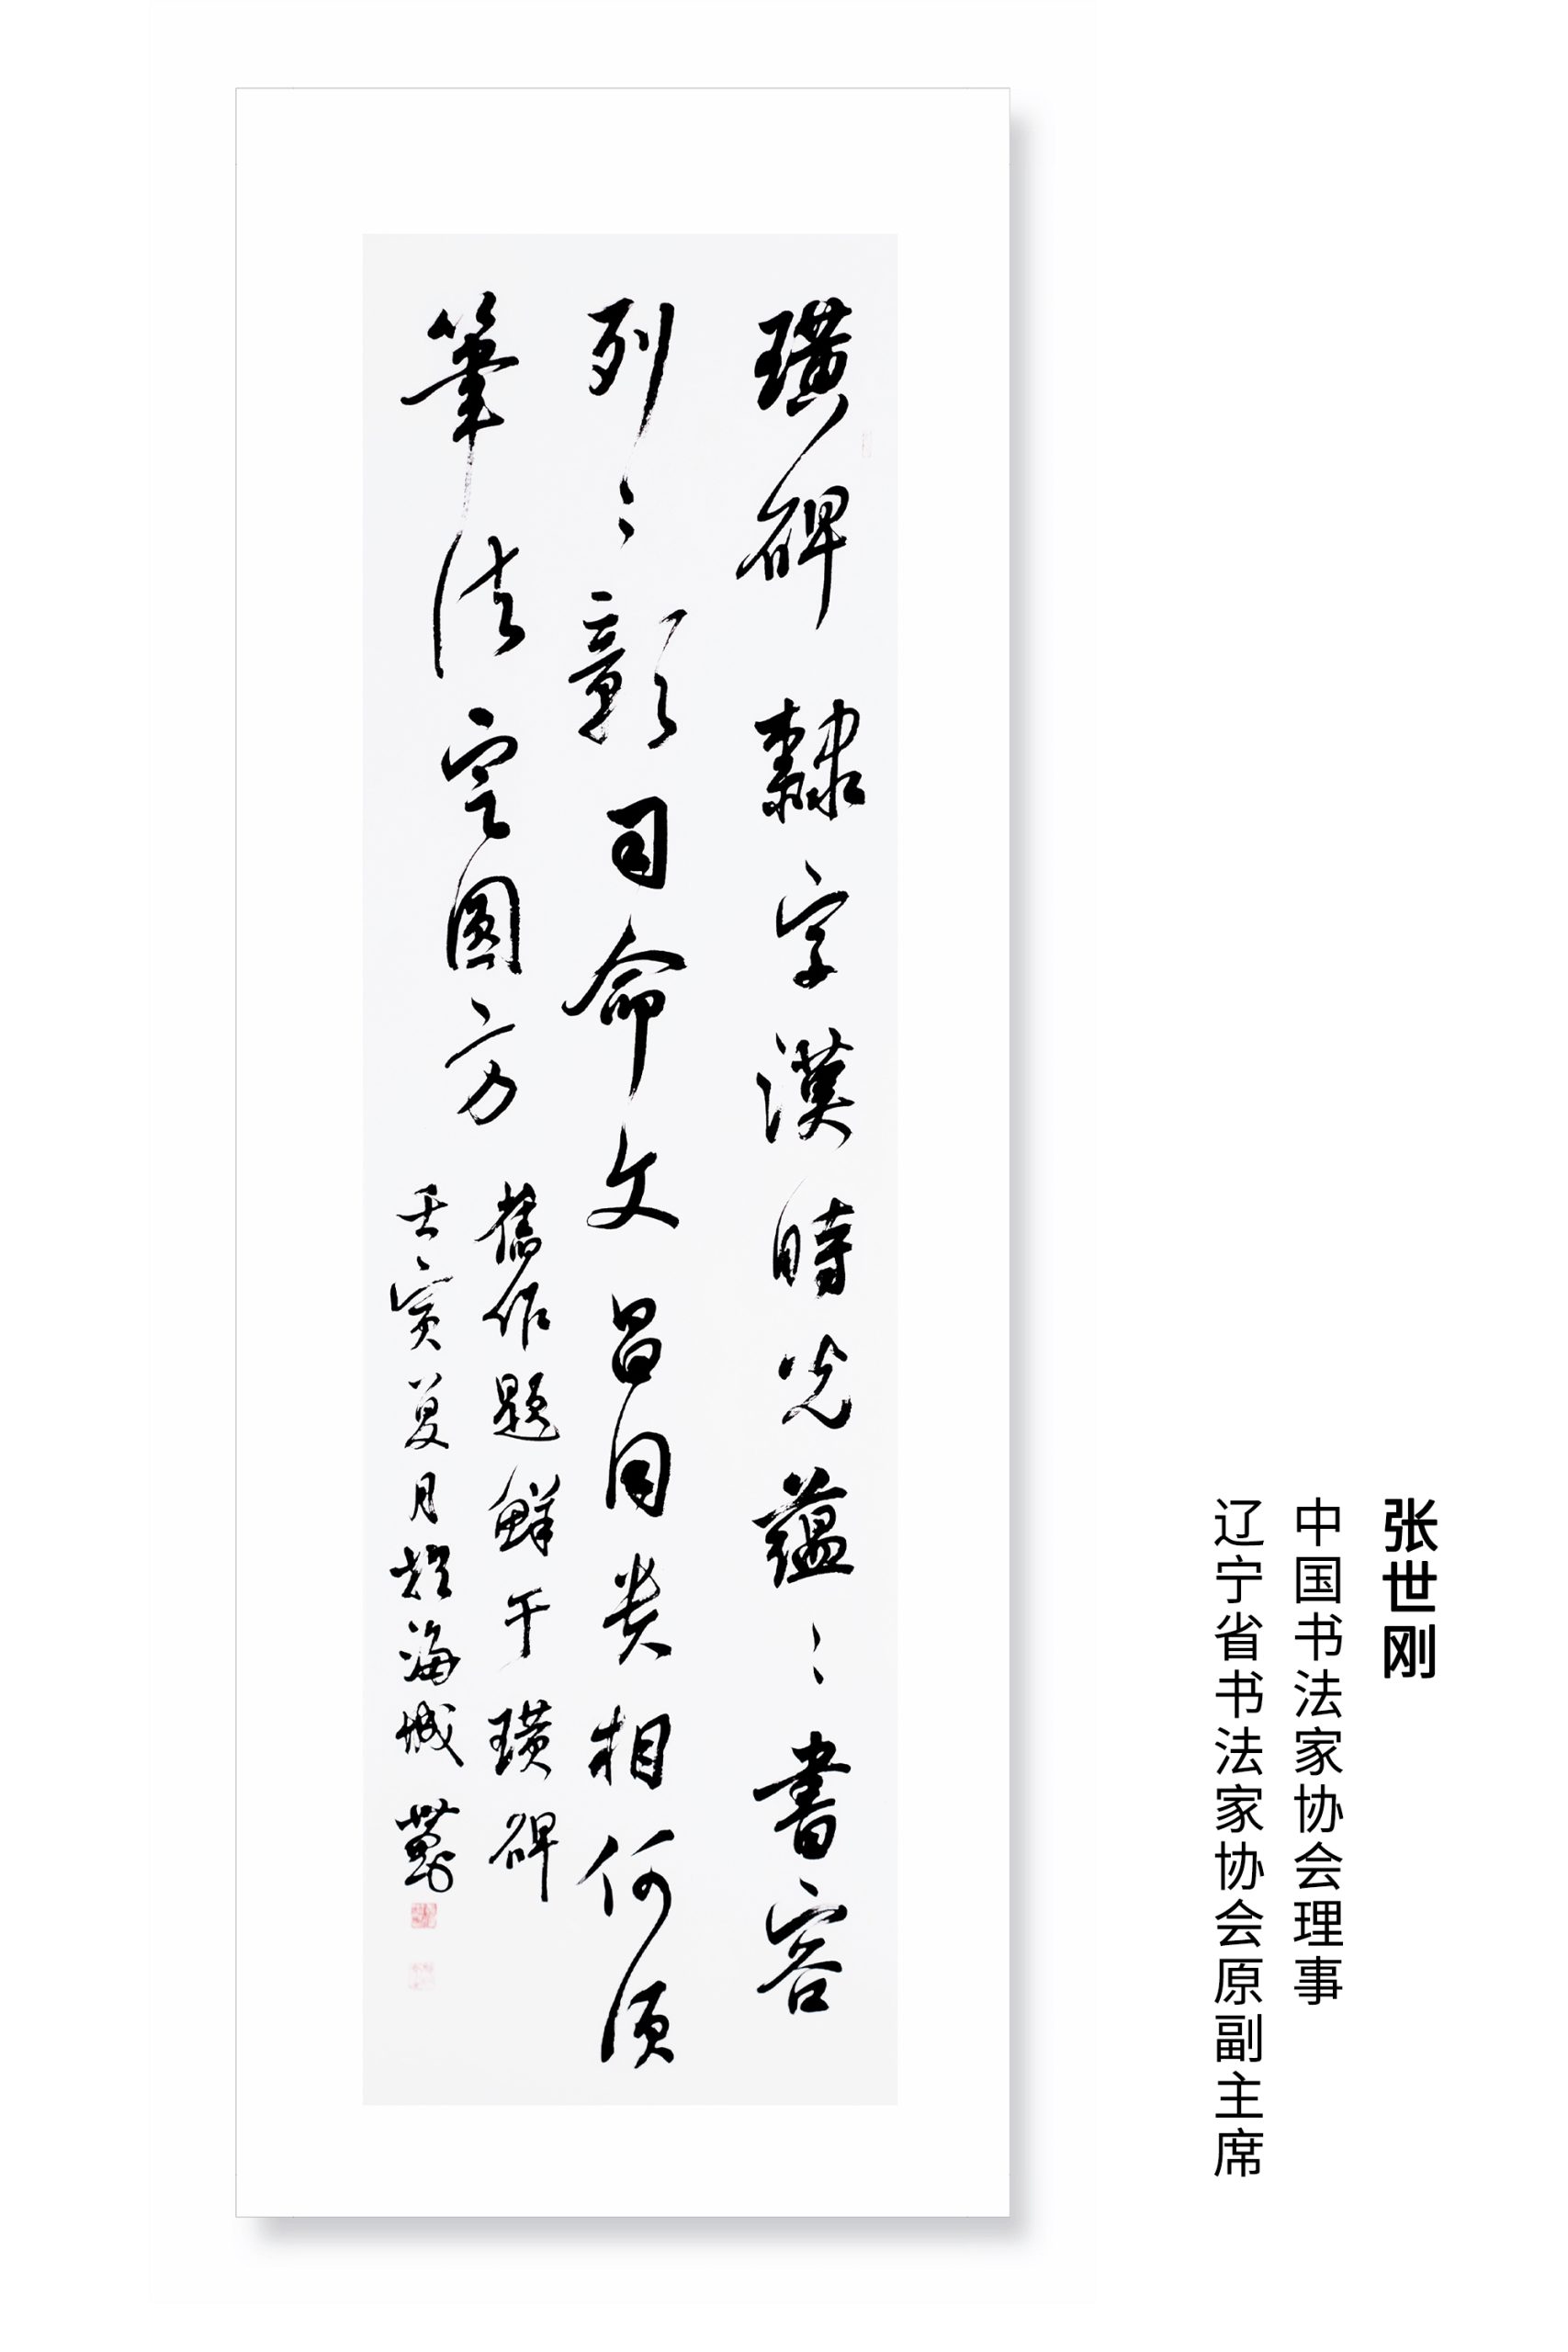 张世刚
中国书法家协会理事
辽宁省书法家协会原副主席
璜碑隸字漢時光蕴〻書容
列〻彰司命文昌同贵相何须
筆法定圓方
舊作題鮮于璜碑
壬寅夏月於海城